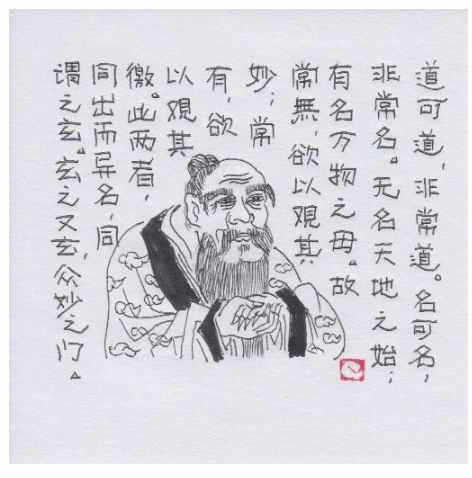 道可道，非常道。名可名，
非常名。无名天地之始；
有名万物之母。故
常無，欲以観其
妙；常
有，欲
以観其
徼。此两者，
同出而异名，同
谓之玄。玄之又玄，众妙之门。